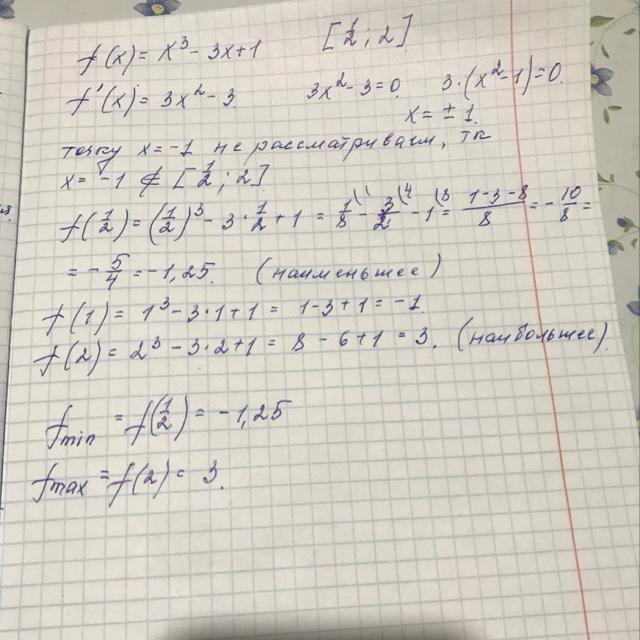 f(x) = x³ - 3x + 1 [1/2; 2]
f'(x) = 3x² - 3 3x² - 3 = 0 3·(x² - 1) = 0
x = ± 1.
точку x = -1 не рассматриваем, тк
x = -1 ∉ [1/2; 2]
f(1/2) = (1/2)³ - 3·1/2 + 1 = 1/8 - 3/2 - 1 = (1-3-8)/8 = -10/8 =
= -5/4 = -1,25. (наименьшее)
f(1) = 1³ - 3·1 + 1 = 1 - 3 + 1 = -1.
f(2) = 2³ - 3·2 + 1 = 8 - 6 + 1 = 3. (наибольшее)
fmin = f(1/2) = -1,25
fmax = f(2) = 3.